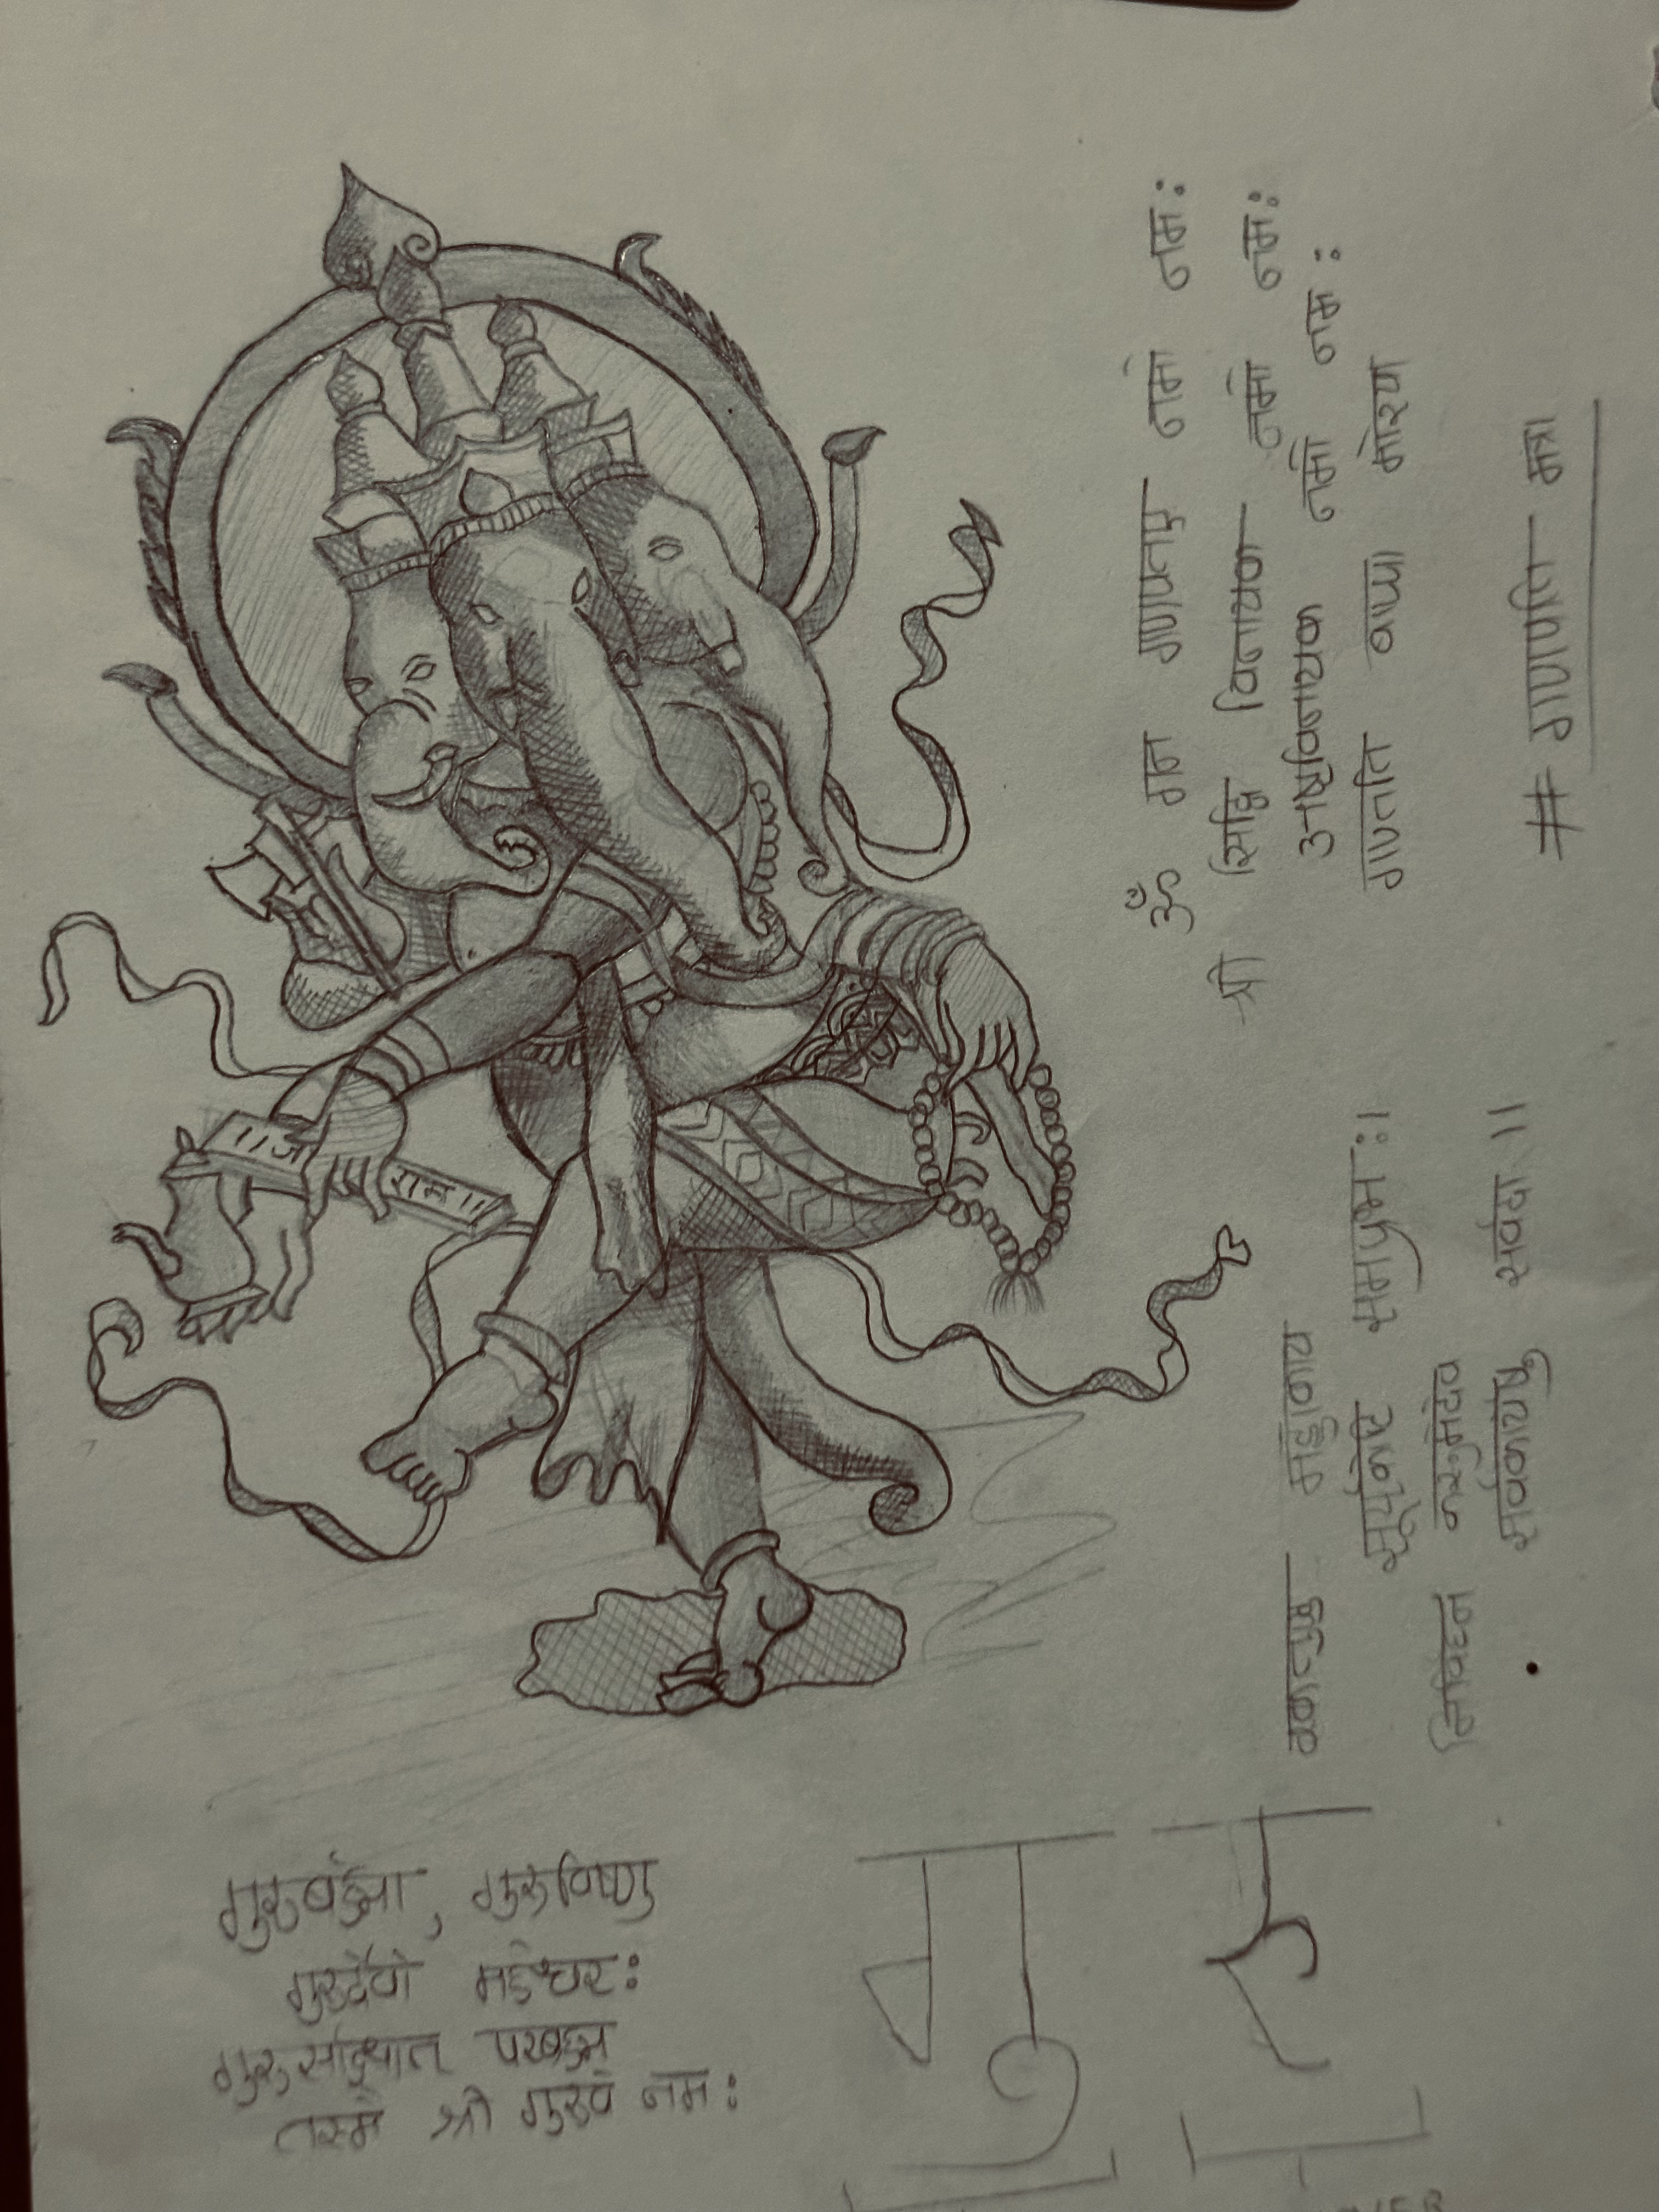 ॐ गन गणपतए नमो नमः
श्री सिद्धि विनायक नमो नमः
अष्टविनायक नमो नमः
गणपति बाप्पा मोरया
# गणपति मत्रा
वक्रतुण्ड
सूर्यकोटि समप्रभः।
सर्वकार्येषु सर्वदा ॥
॥ ज
राम ॥
गुरुब्रह्मा, गुरुविष्णु
गुरुर्देवो महेश्वरः
गुरुसाक्षात् परब्रह्म
तस्मै श्री गुरुवे नमः
गुरु